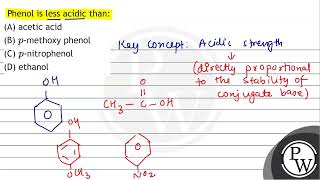 Phenol is less acidic than:
(A) acetic acid
(B) p-methoxy phenol
(C) p-nitrophenol
(D) ethanol
Key Concept: Acidic strength
(directly proportional
to the stability of
conjugate base)
OH
O
CH3 - C - OH
OH
OCH3
NO2
P
W
PW